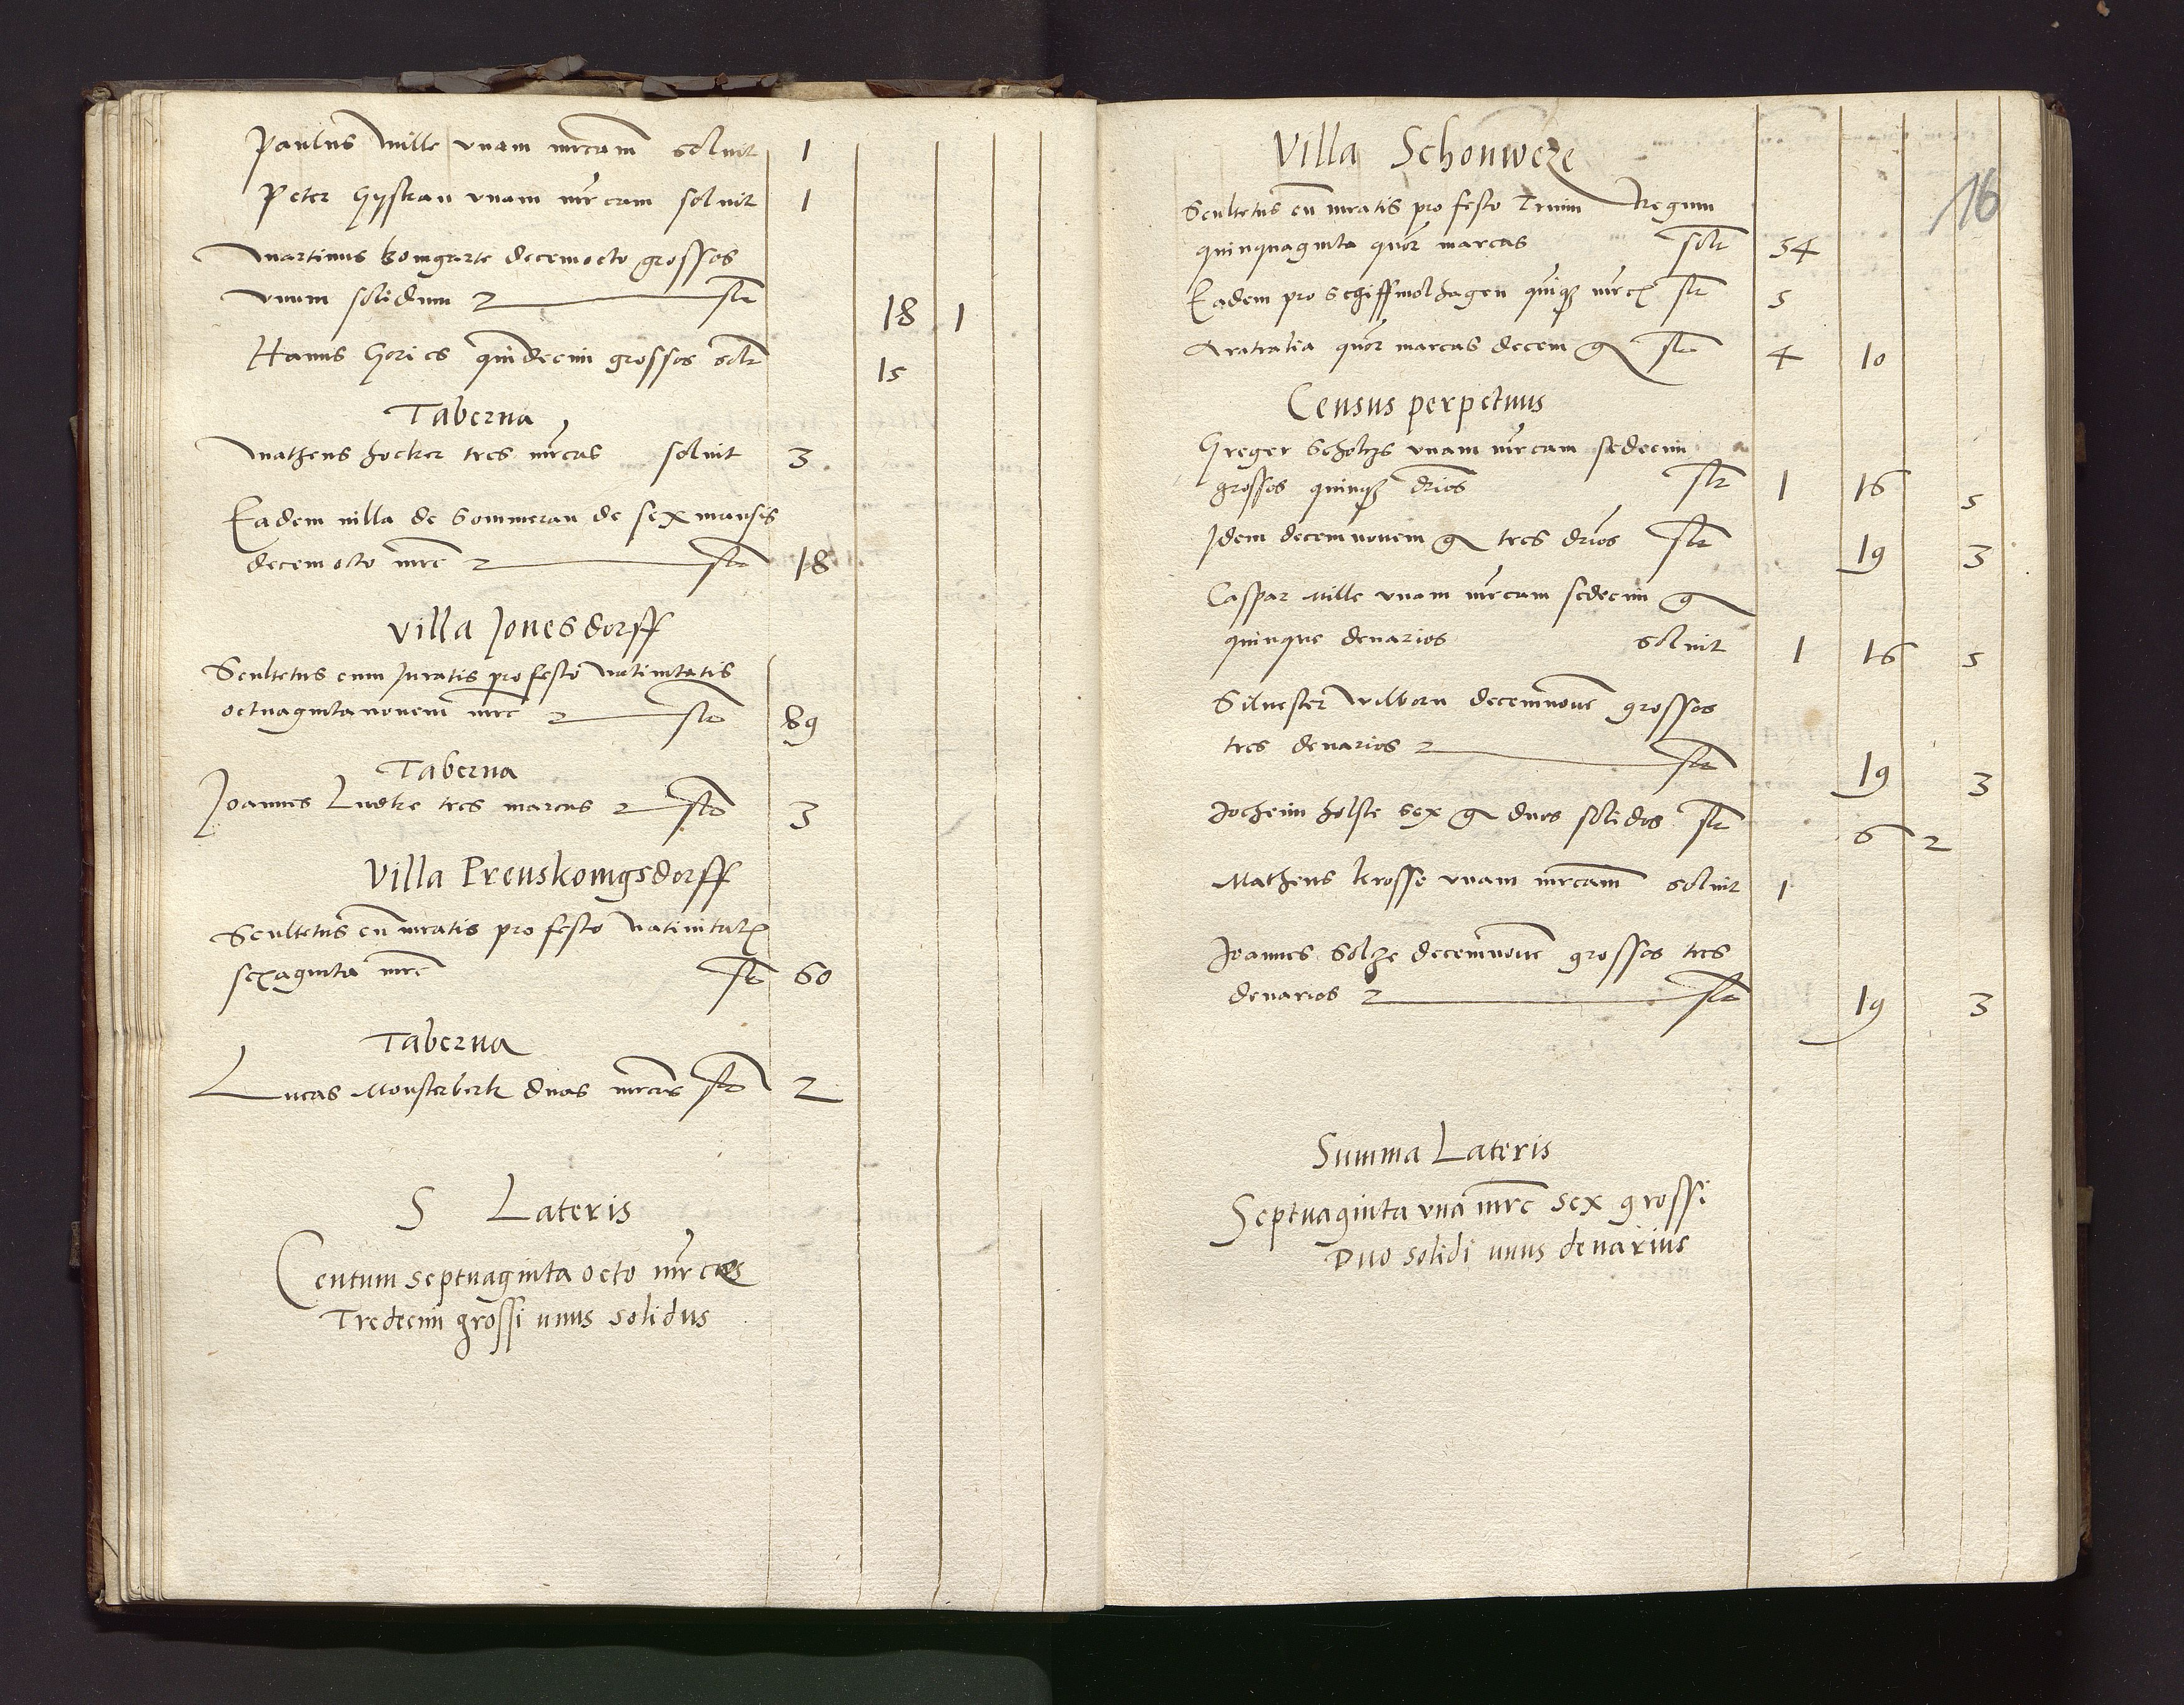 Paulus Mille vnam mrcam soluit 1
Peter Gystran vnam mrcam soluit 1
Martinus komgarte decemocto grossos
vnum solidum slt 18 1
Hanns Gories quindecim grossos solt 15
Taberna
Matheus hocker tres mrcas soluit 3
Eadem uilla de Sommerau de sex mansis
decem octo mrc slt 18
Villa Jonesdorff
Scultetus cum Juratis pro festo Natiuitatis
octuagintanouem mrc slt 89
Taberna
Joannes Ludke tres marcas slt 3
Villa Preuskonigsdorff
Scultetus cu iuratis pro festo Natiuitatis
sexaginta mrc slt 60
Taberna
Lucas Monsterberk duas mrcas slt 2
S Lateris
Centum septuaginta octo mrcas
Tredecim grossi unus solidus
16
Villa Schonweze
Scultetus cu iuratis pro festo Trium Regum
quinquaginta quor marcas solt 54
Eadem pro Schiffmolhagen quiqz mrc slt 5
Aratralia quor marcas decem g slt 4 10
Census perpetuus
Greger Scholtzs vnam mrcam sedecim
grossos quinqz drios slt 1 16 5
Idem decemnouem g tres drios slt 19 3
Caspar Mille vnam mrcam sedecim g
quinque denarios soluit 1 16 5
Siluester Wilborn decemnoue grossos
tres denarios slt 19 3
Jocheim holste sex g duos solidos slt 6 2
Matheus krosse vnam mrcam soluit 1
Joannes Solze decemnoue grossos tres
denarios slt 19 3
Summa Lateris
Septuaginta vna mrc sex grossi
Duo solidi unus denarius